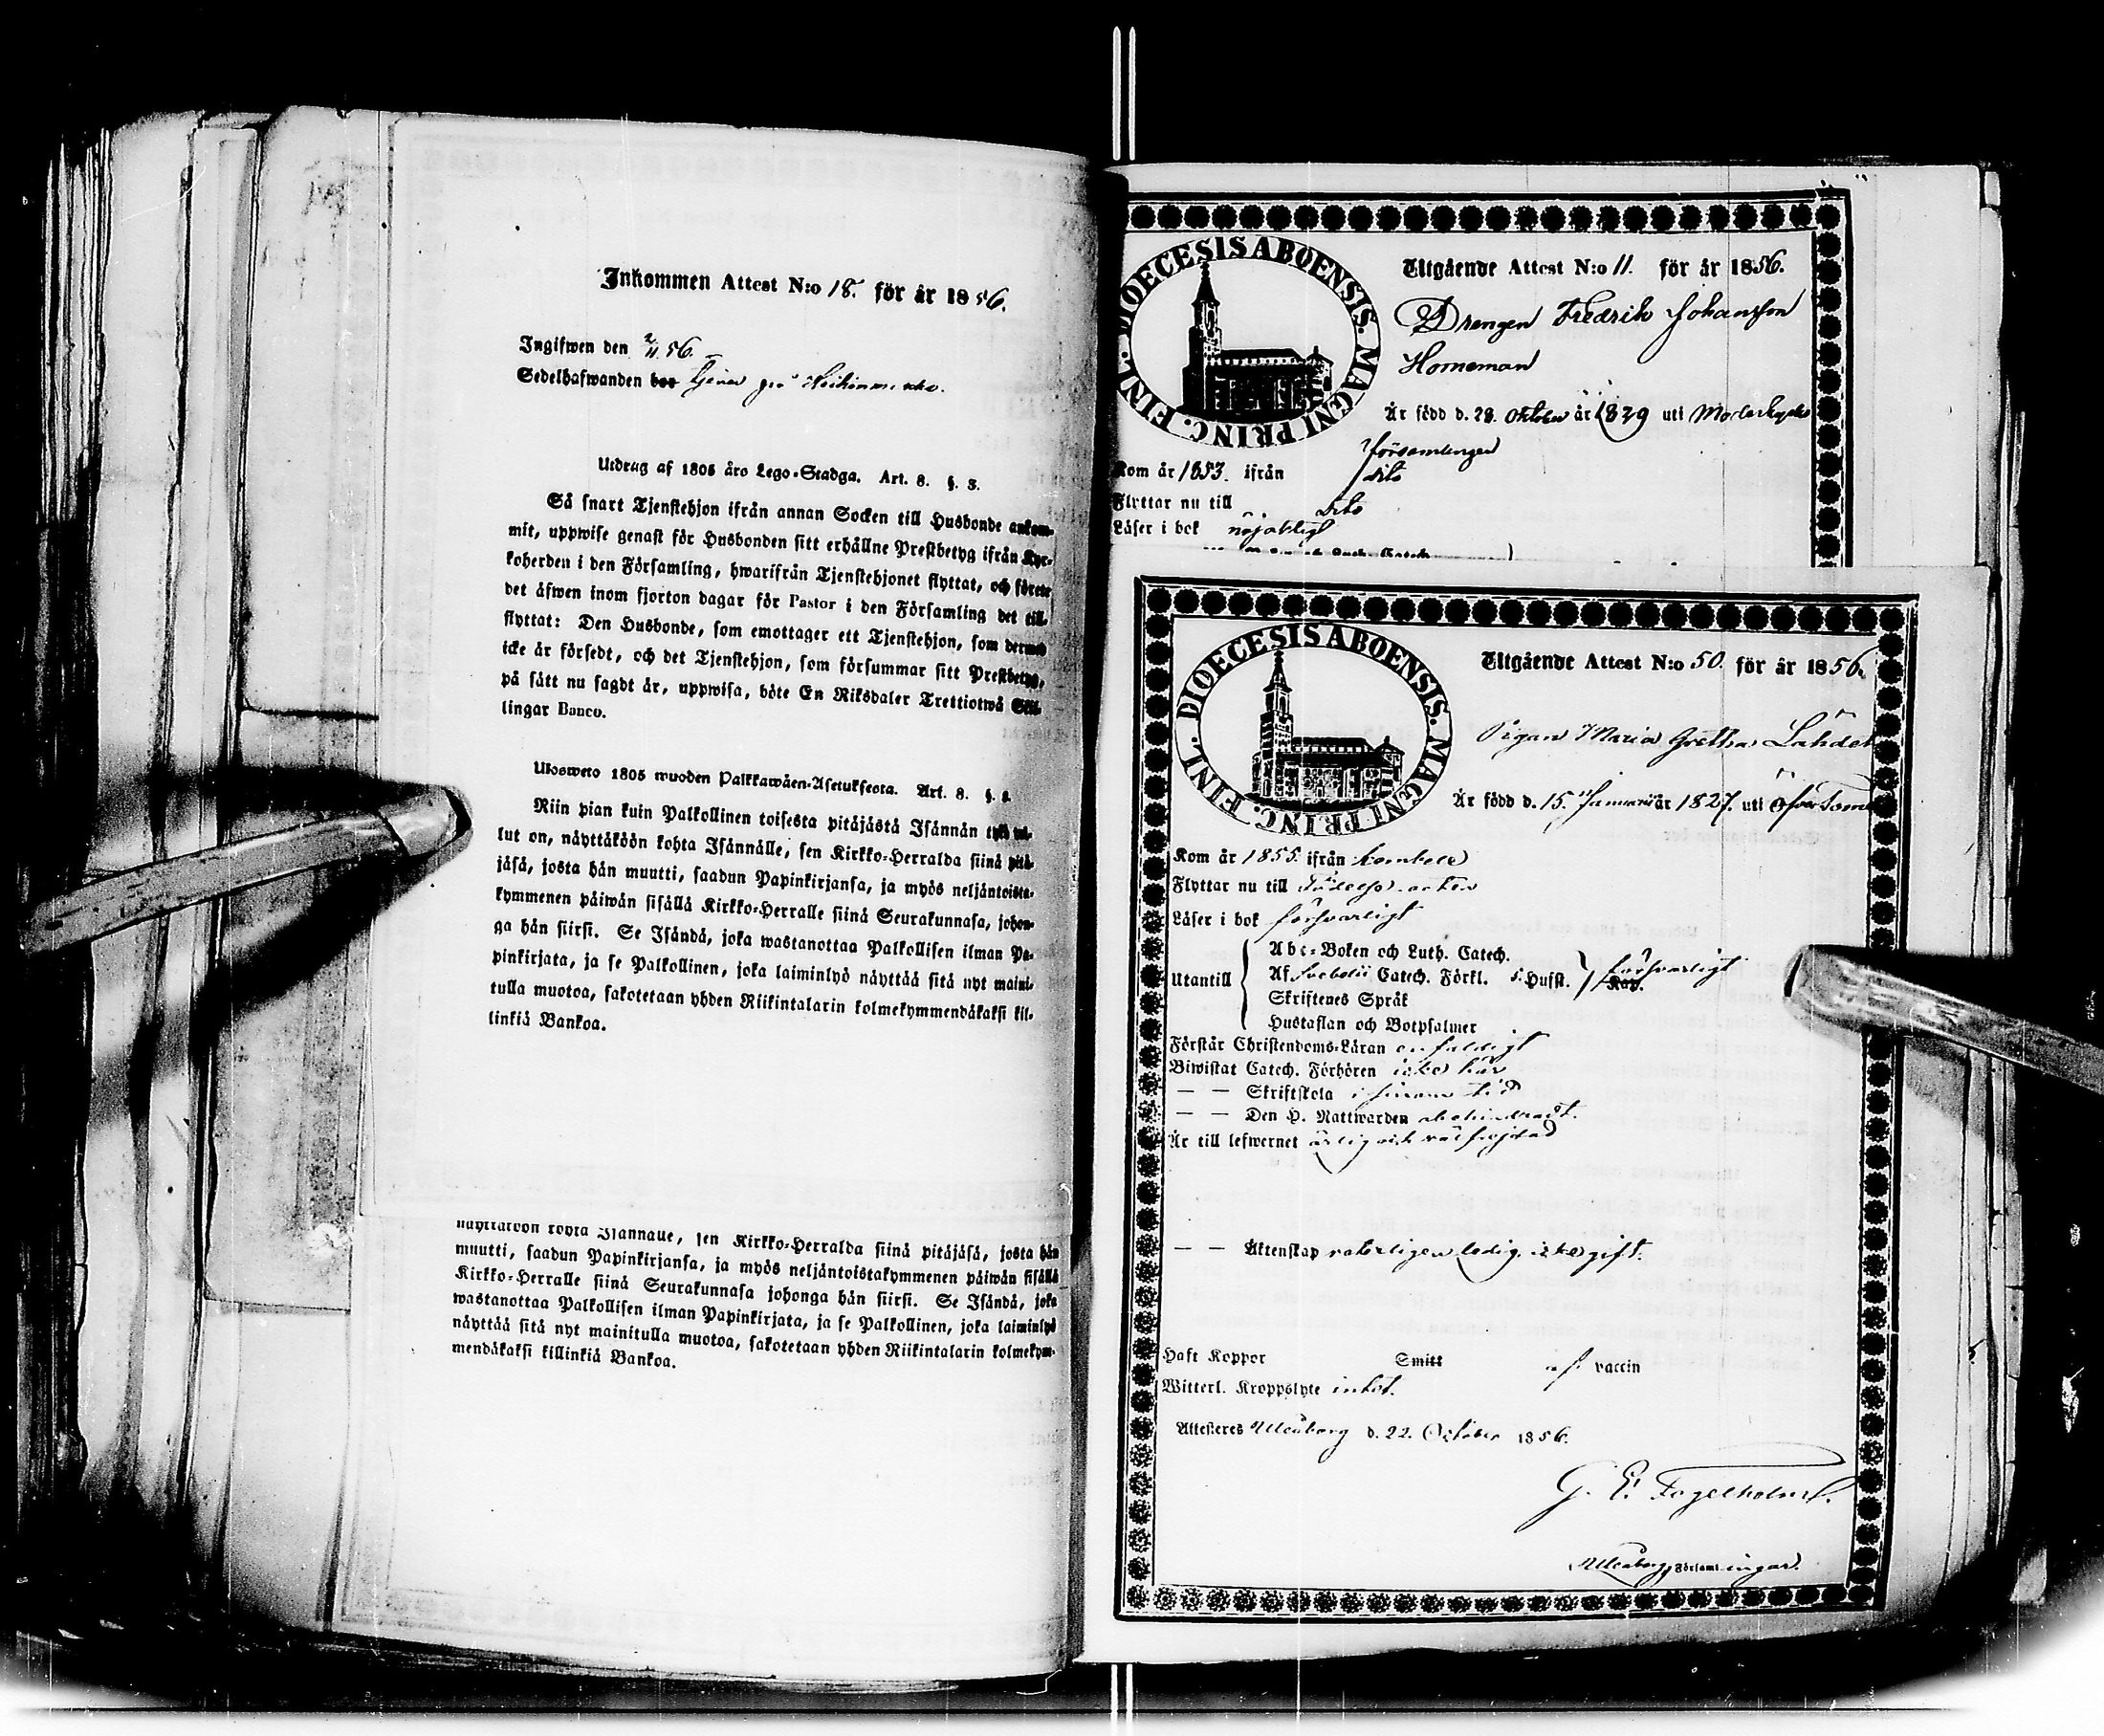 Inkommen Attest N:o 18. för år 1856.
Ingifwen den 2/11 56.
Sedelhafwanden bor tjenar på
Utdrag af 1805 års Lego-Stadga. Art. 8. §. 3.
Så snart Tjenstehjon ifrån annan Socken till Husbonde ankom-
mit, uppwise genast för Husbonden sitt erhållne Prestbetyg ifrån Kyr-
koherden i den Församling, hwarifrån Tjenstehjonet flyttat, och förete
det äfwen inom fjorton dagar för Pastor i den Församling det till-
flyttat: Den Husbonde, som emottager ett Tjenstehjon, som dermed
icke är försedt, och det Tjenstehjon, som försummar sitt Prestbetyg,
på sätt nu sagdt är, uppwisa, böte En Riksdaler Trettiotwå Skil-
lingar Banco.
Ulosweto 1805 wuoden Palkkawäen-Asetuksesta. Art. 8. §. 3.
Niin pian kuin Palkollinen toisesta pitäjästä Isännän tykö tul-
lut on, näyttäköön kohta Isännälle, sen Kirkko-Herralda siinä pitä-
jäsä, josta hän muutti, saadun Papinkirjansa, ja myös neljäntoista-
kymmenen päiwän sisällä Kirkko-Herralle siinä Seurakunnasa, johon-
ga hän siirsi. Se Isändä, joka wastanottaa Palkollisen ilman Pa-
pinkirjata, ja se Palkollinen, joka laiminlyö näyttää sitä nyt maini-
tulla muotoa, sakotetaan yhden Riikintalarin kolmekymmendäkaksi kil-
linkiä Bankoa.
näyttäköön kohta Isännälle, sen Kirkko-Herralda siinä pitäjäsä, josta hän
muutti, saadun Papinkirjansa, ja myös neljäntoistakymmenen päiwän sisällä
Kirkko-Herralle siinä Seurakunnasa johonga hän siirsi. Se Isändä, joka
wastanottaa Palkollisen ilman Papinkirjata, ja se Palkollinen, joka laiminlyö
näyttää sitä nyt mainitulla muotoa, sakotetaan yhden Riikintalarin kolmekym-
mendäkaksi killinkiä Bankoa.
DIOECESIS ABOENSIS. MAGNI PRINC. FINL.
Utgående Attest N:o 11. för år 1856.
Drengen Fredrik Johansson
Horneman
Är född d. 28. Oktober år 1839 uti
församlingen
Kom år 1853. ifrån dito
Flyttar nu till dito
Läser i bok nöjaktligt
DIOECESIS ABOENSIS. MAGNI PRINC. FINL.
Utgående Attest N:o 50. för år 1856.
Pigan Maria Gretha
Är född d. 15. Januarii år 1827. uti
Kom år 1855. ifrån Kembele
Flyttar nu till Födelseorten
Läser i bok försvarligt
Utantill
Abc-Boken och Luth. Catech.
Af Svebelii Catech. Förkl. Hufst. Kap. försvarligt
Skriftenes Språk
Hustaflan och Botpsalmer
Förstår Christendoms-Läran enfaldigt
Biwistat Catech. Förhören icke här
— — Skriftskola i sinom tid
— — Den H. Nattwarden obehindradt.
Är till lefwernet ärlig och väl frejdad
— — Äktenskap veterligen ledig. icke gift.
Haft Koppor Smitt af vaccin
Witterl. Kroppslyte intet.
Attesteres Uleåborg d. 22. October 1856.
G. E. Fogelholm
Uleåborgs Församlingar.